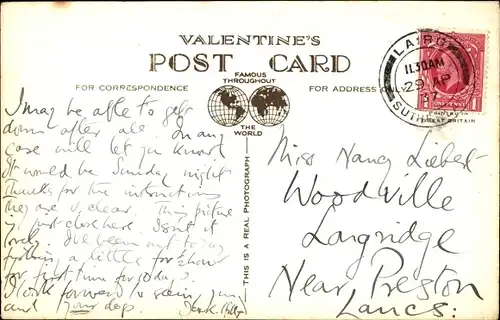 VALENTINE'S
POST CARD
FAMOUS THROUGHOUT
THE WORLD
FOR CORRESPONDENCE
FOR ADDRESS ONLY
THIS IS A REAL PHOTOGRAPH
LAIRG
11.30AM
29 AP
37
SUTH
ONE PENNY
1
GREAT BRITAIN
I may be able to get
down after all. In any
case will let you know
It would be Sunday night
Thanks for the instructions
they are v. clear. This picture
is just close here. Isn't it
lovely I've been out today
a little for
for first time for 10 days
I look forward to seeing you
and your dogs.
Miss Nancy
Woodville
Longridge
Near Preston
Lancs: